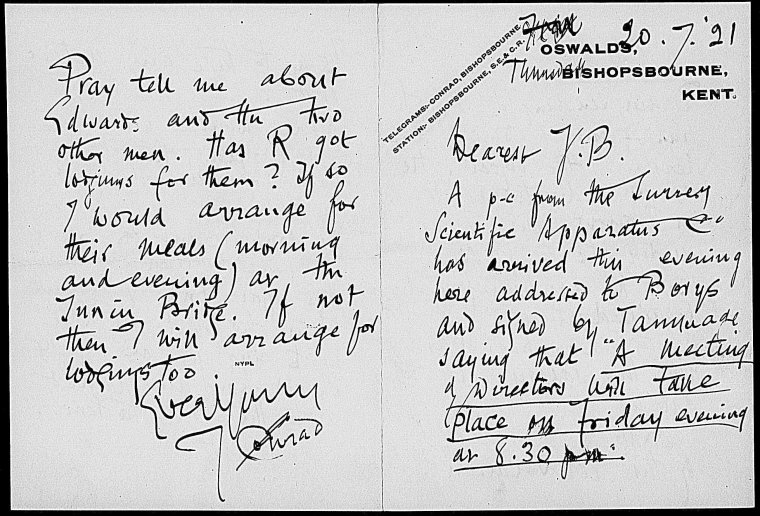 TELEGRAMS:- CONRAD, BISHOPSBOURNE.
STATION:- BISHOPSBOURNE, S.E.& C.R.
20.7.'21
OSWALDS,
Thursday
BISHOPSBOURNE,
KENT.
Dearest J.B.
A p-c from the Surrey
Scientific Apparatus Cº
has arrived this evening
here addressed to Borys
and signed by
saying that "A meeting
of Directors will take
place on friday evening
at 8.30 pm".
Pray tell me about
Edwards and the two
other men. Has R got
lodgings for them? If so
I would arrange for
their meals (morning
and evening) at the
Inn in Bridge. If not
then I will arrange for
lodgings too
NYPL
Ever Yours
J Conrad